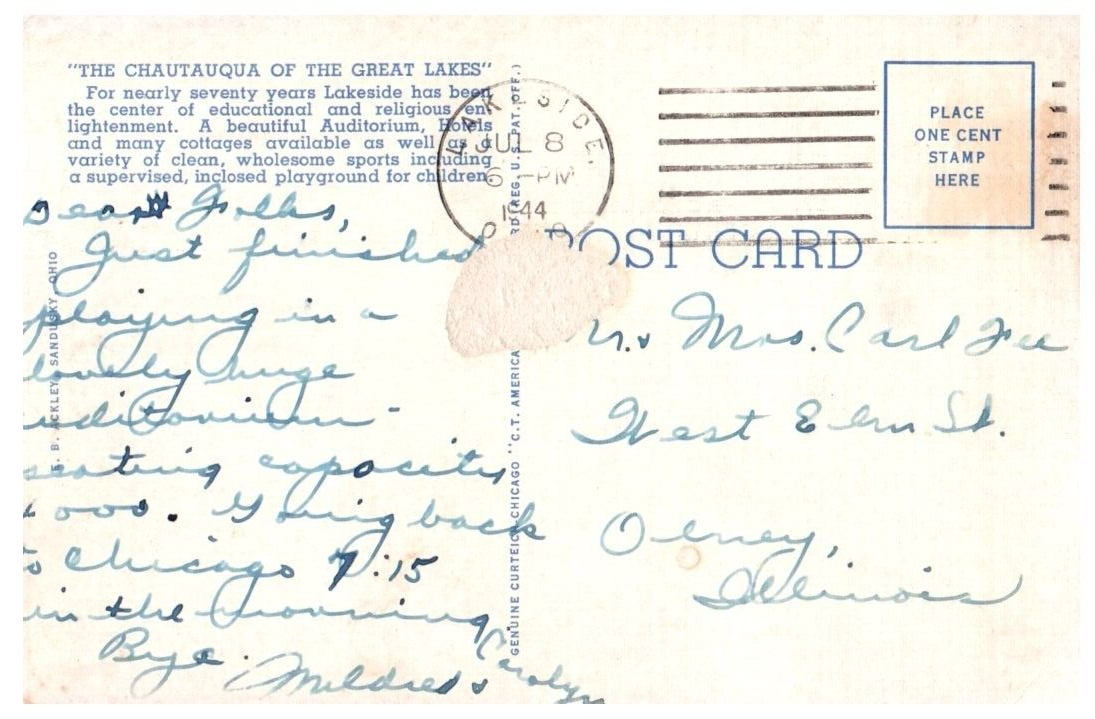 "THE CHAUTAUQUA OF THE GREAT LAKES"
For nearly seventy years Lakeside has been
the center of educational and religious en-
lightenment. A beautiful Auditorium, Hotels
and many cottages available as well as a
variety of clean, wholesome sports including
a supervised, inclosed playground for children.
LAKESIDE,
JUL 8
6 - PM
1944
O
PLACE
ONE CENT
STAMP
HERE
POST CARD
Dear Folks,
Just finished
playing in a
lovely huge
uditorium -
seating capacity
000. Going back
to Chicago 7:15
in the morning.
Bye.
Mildred & Carolyn
B. ACKLEY, SANDUSKY, OHIO
GENUINE CURTEICH-CHICAGO "C.T. AMERICA
RD (REG. U.S. PAT. OFF.)
r. & Mrs. Carl Fee
West Elm St.
Olney,
Illinois